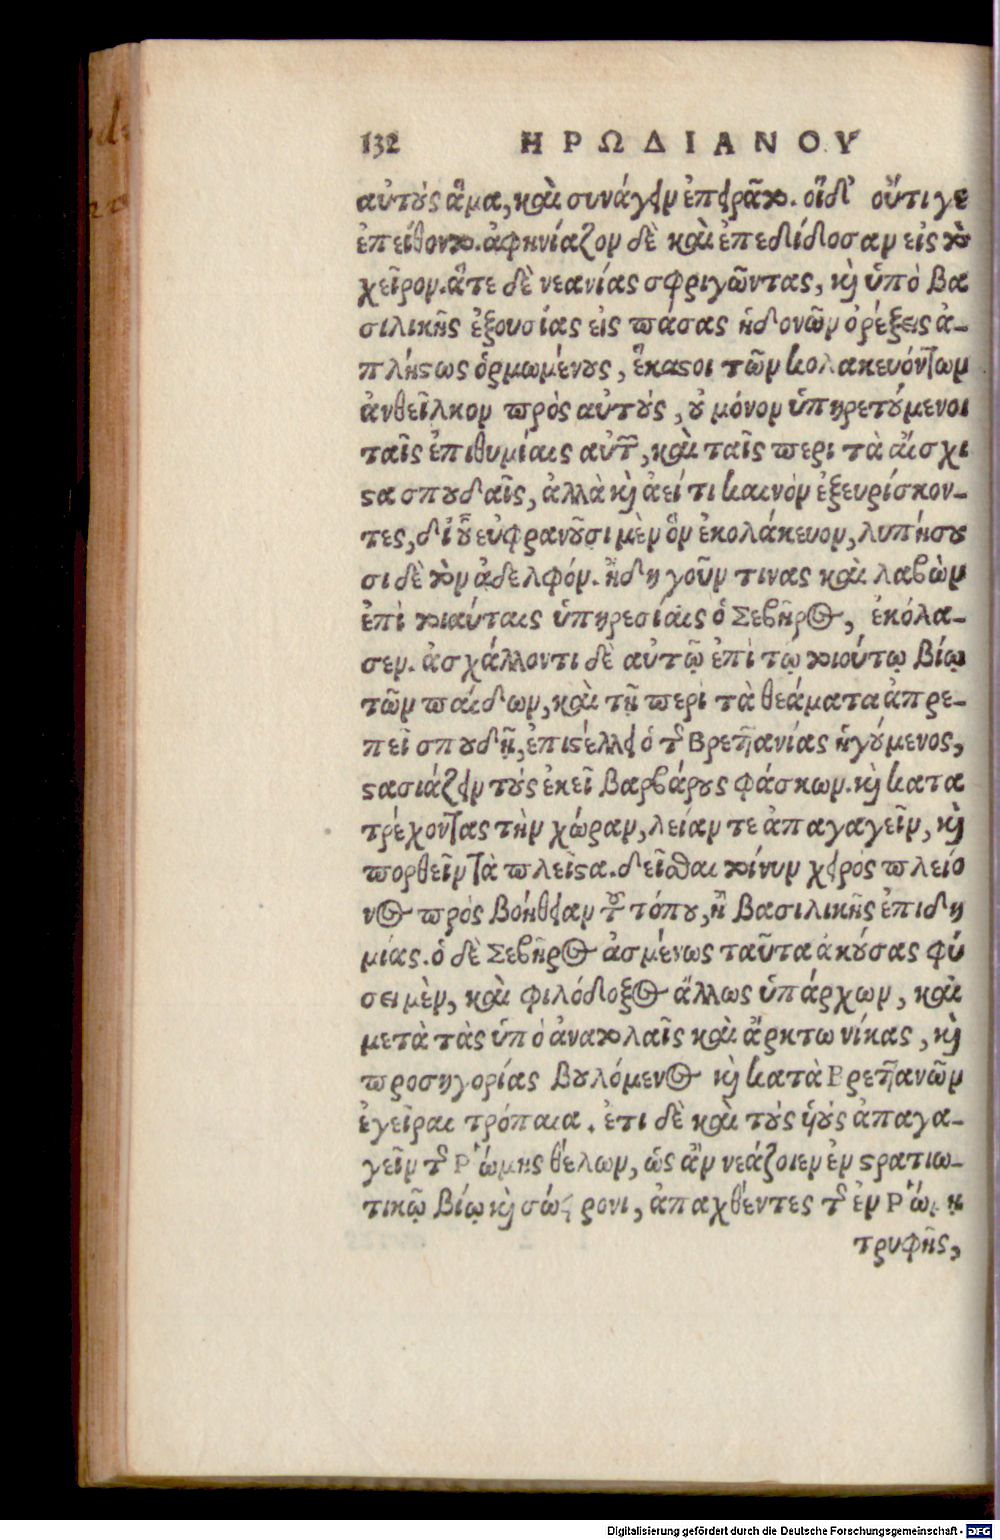 132 ΗΡΩΔΙΑΝΟΥ
αὐτοὺς ἅμα, καὶ συνάγειν ἐπειρᾶτο. οἱ δὲ οὔτι γε
ἐπείθοντο. ἀφηνίαζον δὲ καὶ ἐπεδίδοσαν εἰς τὸ
χεῖρον. ἅτε δὲ νεανίας σφριγῶντας, καὶ ὑπὸ βα
σιλικῆς ἐξουσίας εἰς πάσας ἡδονῶν ὀρέξεις ἀ-
πλήστως ὁρμωμένους, ἕκαστοι τῶν κολακευόντων
ἀνθεῖλκον πρὸς αὐτοὺς, οὐ μόνον ὑπηρετούμενοι
ταῖς ἐπιθυμίαις αὐτῶν, καὶ ταῖς περι τὰ αἴσχι
στα σπουδαῖς, ἀλλὰ καὶ ἀεί τι καινὸν ἐξευρίσκον-
τες, δι' οὗ εὐφρανοῦσι μὲν ὃν ἐκολάκευον, λυπήσου
σι δὲ τὸν ἀδελφόν. ἤδη γοῦν τινας καὶ λαβὼν
ἐπὶ τοιαύταις ὑπηρεσίαις ὁ Σεβῆρος, ἐκόλα-
σεν. ἀσχάλλοντι δὲ αὐτῷ ἐπὶ τῷ τοιούτῳ βίῳ
τῶν παίδων, καὶ τῇ περὶ τὰ θεάματα ἀπρε-
πεῖ σπουδῇ, ἐπιστέλλει ὁ τῆς Βρεττανίας ἡγούμενος,
στασιάζειν τοὺς ἐκεῖ βαρβάρους φάσκων. καὶ κατα
τρέχοντας τὴν χώραν, λείαν τε ἀπαγαγεῖν, καὶ
πορθεῖν τὰ πλεῖστα. δεῖσθαι τοίνυν χειρὸς πλείο
νος πρὸς βοήθειαν τοῦ τόπου, ἢ βασιλικῆς ἐπιδη
μίας. ὁ δὲ Σεβῆρος ἀσμένως ταῦτα ἀκούσας φύ
σει μὲν, καὶ φιλόδοξος ἄλλως ὑπάρχων, καὶ
μετὰ τὰς ὑπὸ ἀνατολαῖς καὶ ἄρκτω νίκας, καὶ
προσηγορίας βουλόμενος καὶ κατὰ Βρεττανῶν
ἐγεῖραι τρόπαια. ἐτι δὲ καὶ τοὺς υἱοὺς ἀπαγα-
γεῖν τῆς Ῥώμης θέλων, ὡς ἂν νεάζοιεν ἐν στρατιω-
τικῷ βίῳ καὶ σώφρονι, ἀπαχθέντες τῆς ἐν Ῥώμῃ
τρυφῆς,
Digitalisierung gefördert durch die Deutsche Forschungsgemeinschaft - DFG